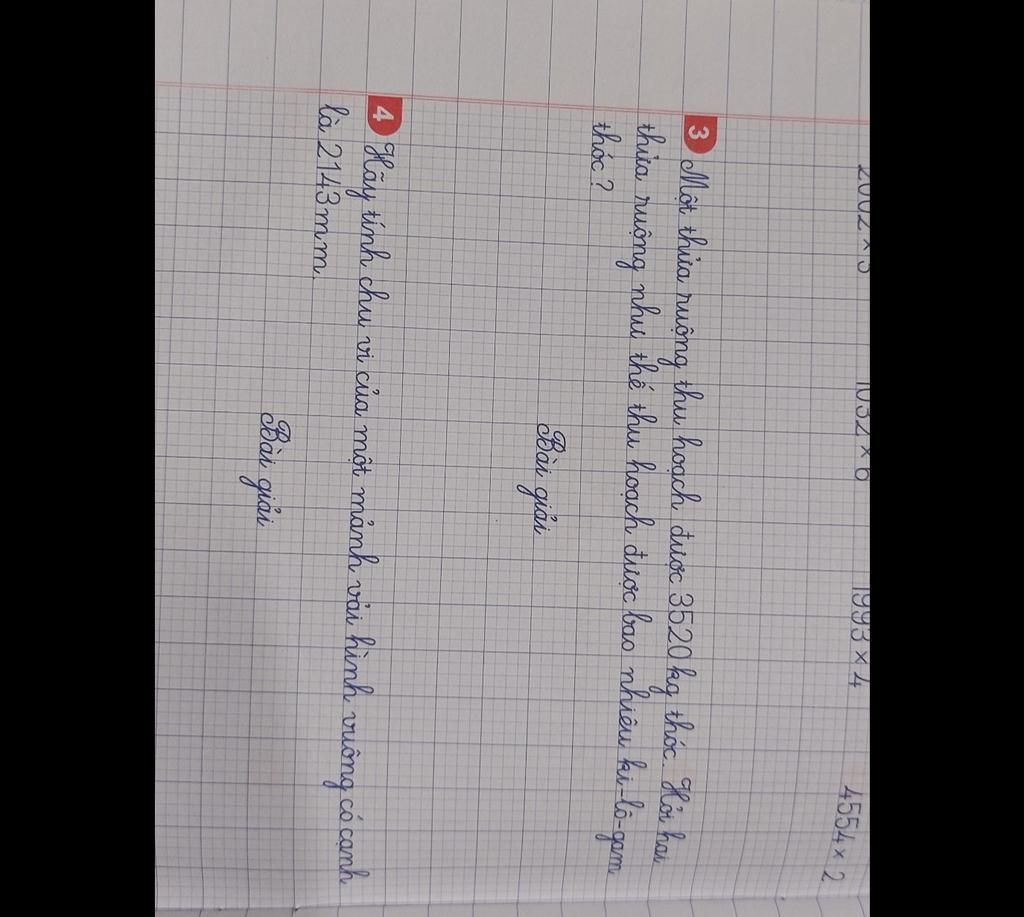 2002 × 3 1032 × 6 1993 × 4 4554 × 2
3 Một thửa ruộng thu hoạch được 3520 kg thóc. Hỏi hai
thửa ruộng như thế thu hoạch được bao nhiêu ki-lô-gam
thóc?
Bài giải
4 Hãy tính chu vi của một mảnh vải hình vuông có cạnh
là 2143mm.
Bài giải